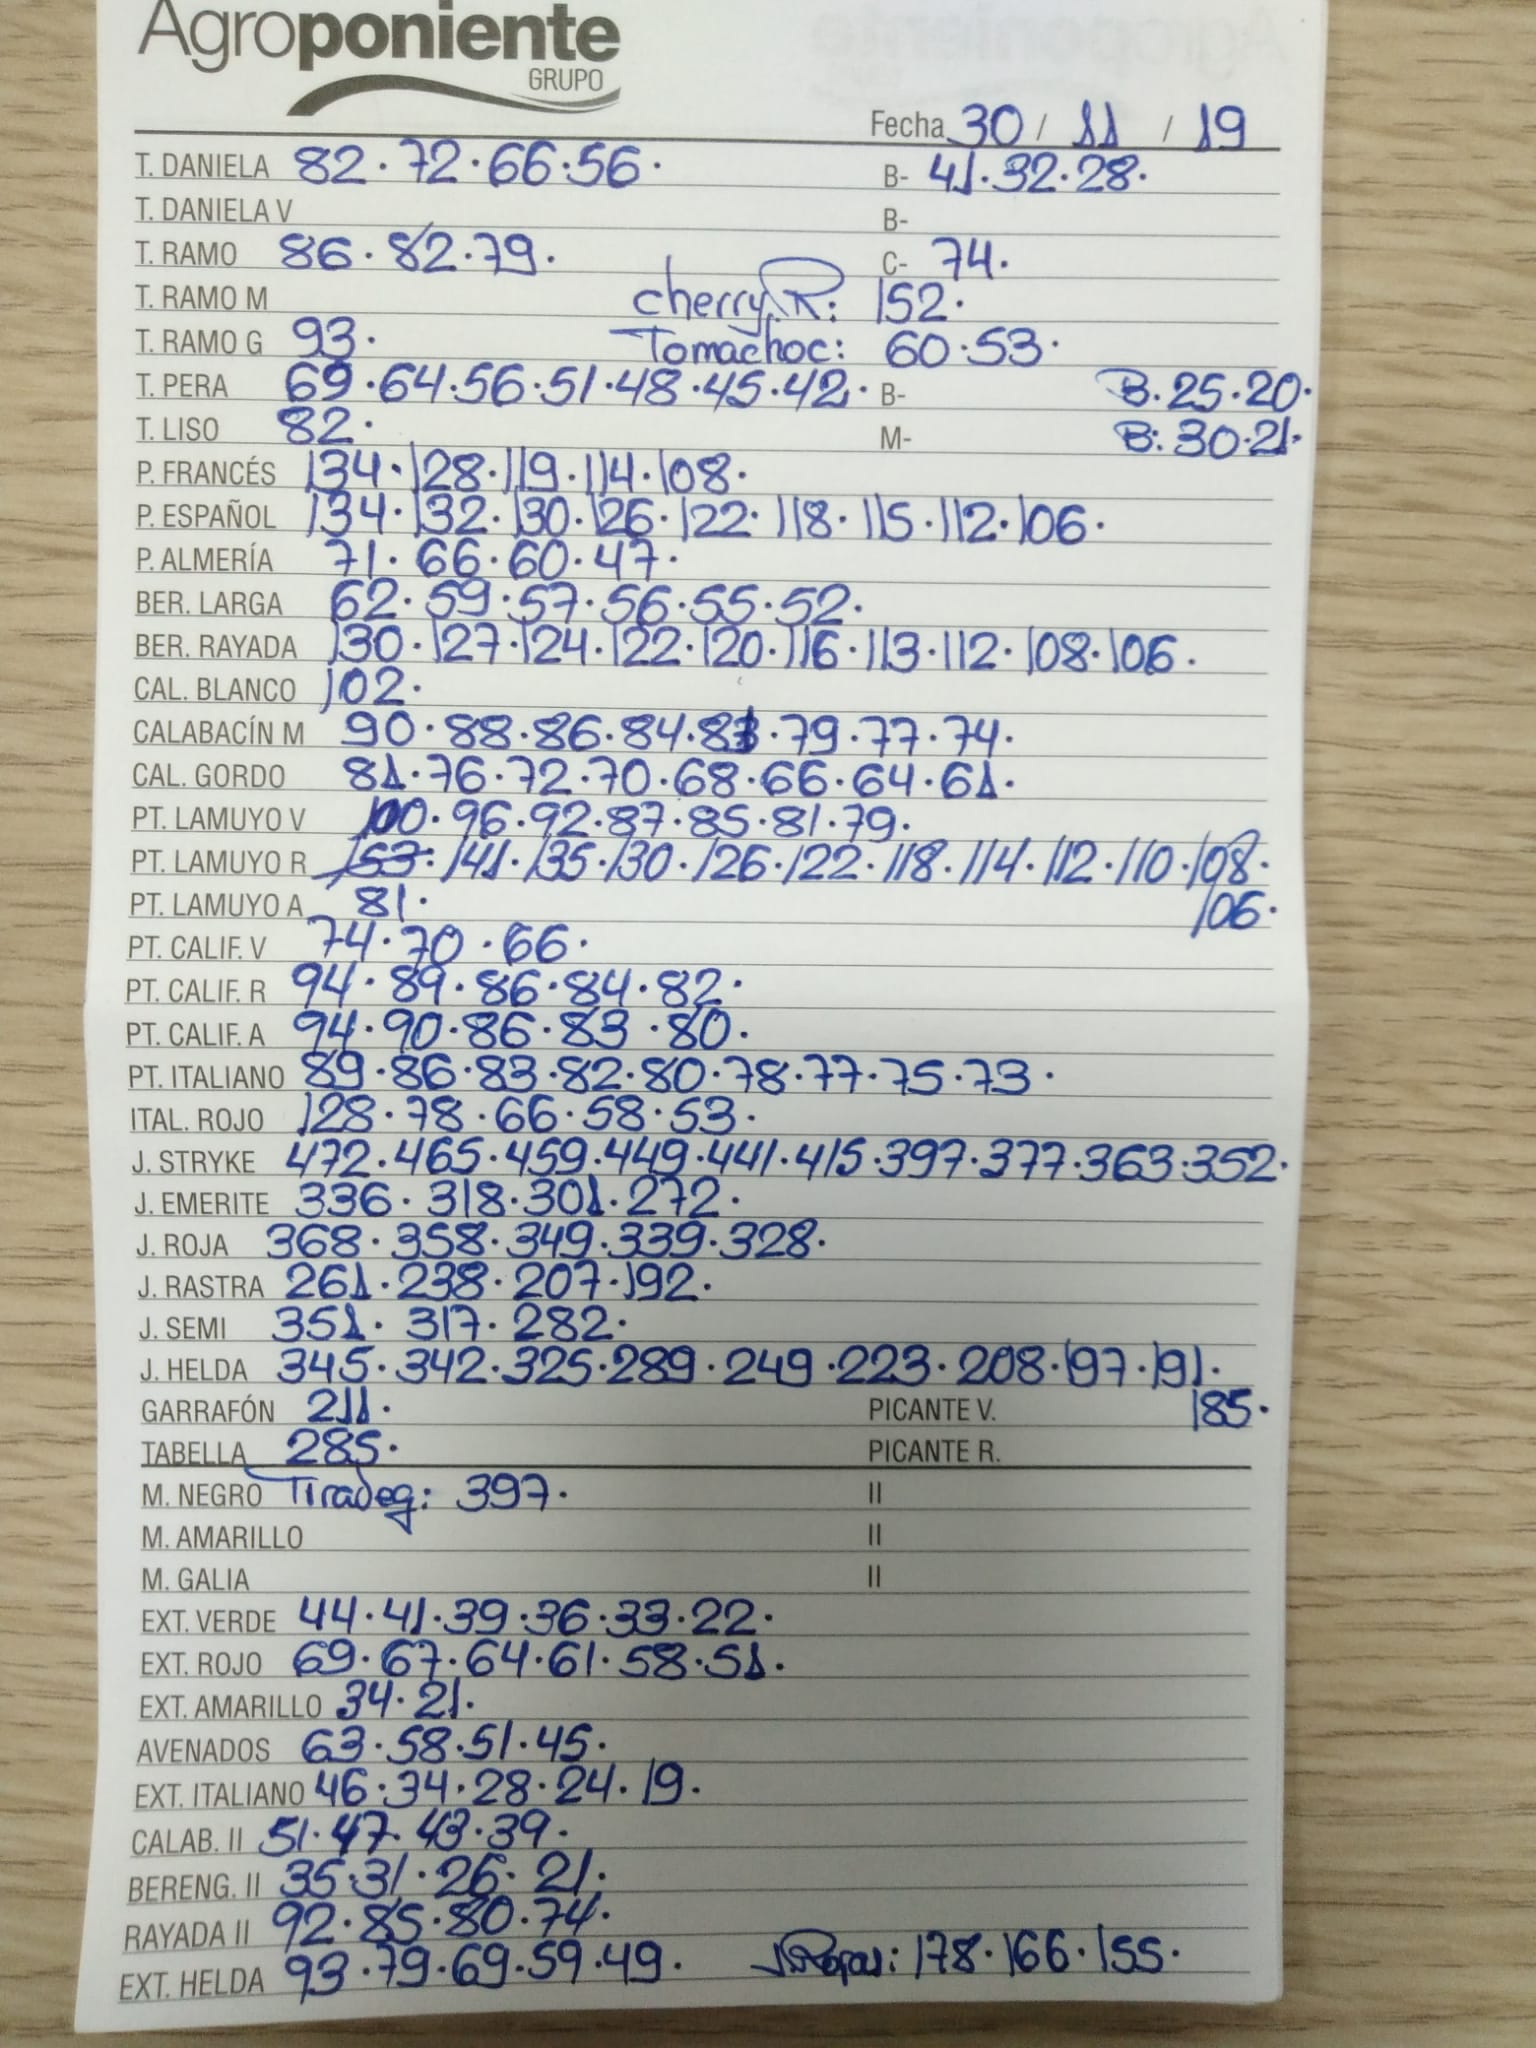 Agroponiente
GRUPO
Fecha 30 / 11 / 19
T. DANIELA 82 · 72 · 66 · 56 · B- 41 · 32 · 28 ·
T. DANIELA V B-
T. RAMO 86 · 82 · 79 · C- 74 ·
T. RAMO M cherry R: 152 ·
T. RAMO G 93 · Tomachoc: 60 · 53 ·
T. PERA 69 · 64 · 56 · 51 · 48 · 45 · 42 · B- B. 25 · 20 ·
T. LISO 82 · M- B: 30 · 21 ·
P. FRANCÉS 134 · 128 · 119 · 114 · 108 ·
P. ESPAÑOL 134 · 132 · 130 · 126 · 122 · 118 · 115 · 112 · 106 ·
P. ALMERÍA 71 · 66 · 60 · 47 ·
BER. LARGA 62 · 59 · 57 · 56 · 55 · 52 ·
BER. RAYADA 130 · 127 · 124 · 122 · 120 · 116 · 113 · 112 · 108 · 106 ·
CAL. BLANCO 102 ·
CALABACÍN M 90 · 88 · 86 · 84 · 79 · 77 · 74 ·
CAL. GORDO 81 · 76 · 72 · 70 · 68 · 66 · 64 · 61 ·
PT. LAMUYO V 100 · 96 · 92 · 87 · 85 · 81 · 79 ·
PT. LAMUYO R 153 · 141 · 135 · 130 · 126 · 122 · 118 · 114 · 112 · 110 · 108 ·
PT. LAMUYO A 81 · 106 ·
PT. CALIF. V 74 · 70 · 66 ·
PT. CALIF. R 94 · 89 · 86 · 84 · 82 ·
PT. CALIF. A 94 · 90 · 86 · 83 · 80 ·
PT. ITALIANO 89 · 86 · 83 · 82 · 80 · 78 · 77 · 75 · 73 ·
ITAL. ROJO 128 · 78 · 66 · 58 · 53 ·
J. STRYKE 472 · 465 · 459 · 449 · 441 · 415 · 397 · 377 · 363 · 352 ·
J. EMERITE 336 · 318 · 301 · 272 ·
J. ROJA 368 · 358 · 349 · 339 · 328 ·
J. RASTRA 261 · 238 · 207 · 192 ·
J. SEMI 351 · 317 · 282 ·
J. HELDA 345 · 342 · 325 · 289 · 249 · 223 · 208 · 197 · 191 ·
GARRAFÓN 211 · PICANTE V. 185 ·
TABELLA 285 · PICANTE R.
M. NEGRO Tiradeg: 397 · II
M. AMARILLO II
M. GALIA II
EXT. VERDE 44 · 41 · 39 · 36 · 33 · 22 ·
EXT. ROJO 69 · 67 · 64 · 61 · 58 · 51 ·
EXT. AMARILLO 34 · 21 ·
AVENADOS 63 · 58 · 51 · 45 ·
EXT. ITALIANO 46 · 34 · 28 · 24 · 19 ·
CALAB. II 51 · 47 · 43 · 39 ·
BERENG. II 35 · 31 · 26 · 21 ·
RAYADA II 92 · 85 · 80 · 74 ·
EXT. HELDA 93 · 79 · 69 · 59 · 49 · 178 · 166 · 155 ·